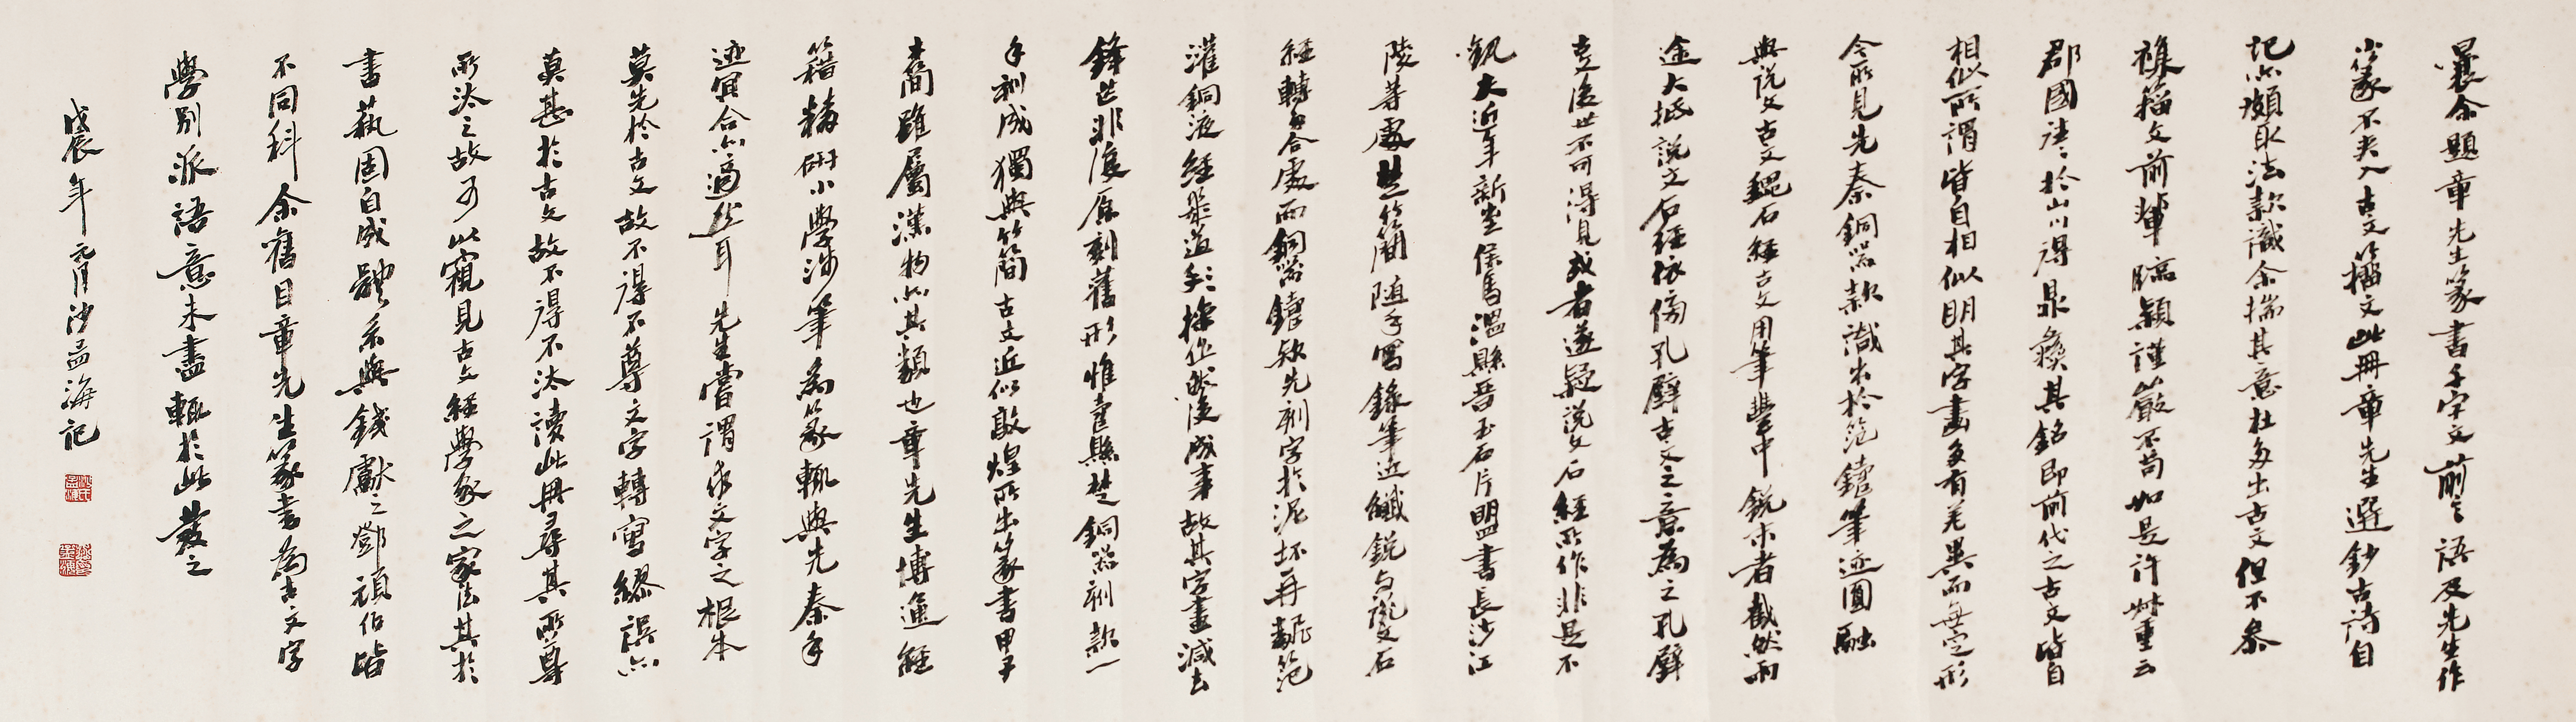 曩余題章先生篆書千字文前言語及先生作
小篆不夾入古文籀文此冊章先生選鈔古詩自
記亦頗取法款識余揣其意在多出古文但不參
襍籀文前輩臨穎謹嚴不苟如是許叔重云
郡國往往於山川得鼎彝其銘即前代之古文皆自
相似所謂皆自相似明其字畫多有差異而無定形
今所見先秦銅器款識出於范鑄筆迹圓融
與說文古文魏石經古文用筆豐中銳末者截然兩
途大抵說文石經依傍孔壁古文之意為之孔壁
書後世不可得見或者遂疑說文石經所作非是不
釩大近年新出侯馬溫縣晉玉石片盟書長沙江
陵等處楚簡隨手寫錄筆近纖銳与說文石
經轉多合處而銅器鑄款先刻字於泥坯再翻范
灌銅液經幾道手操作然後成事故其字畫減去
鋒芒非復原刻舊形惟壽縣楚銅器刻款一
手刻成獨與竹簡古文近似敦煌所出篆書甲子
木簡雖屬漢物亦其類也章先生博通經
籍精研小學涉筆為篆輒與先秦手
迹冥合亦適然耳先生嘗謂求文字之根本
莫先於古文故不得不尊文字轉寫繆誤亦
莫甚於古文故不得不汰讀此冊尋其所尊
所汰之故可以窺見古文經學家之家法其於
書藝固自成體系與錢獻之鄧頑伯皆
不同科余舊日章先生篆書為古文字
學別派語意未盡輒於此發之
戊辰年元月沙孟海記